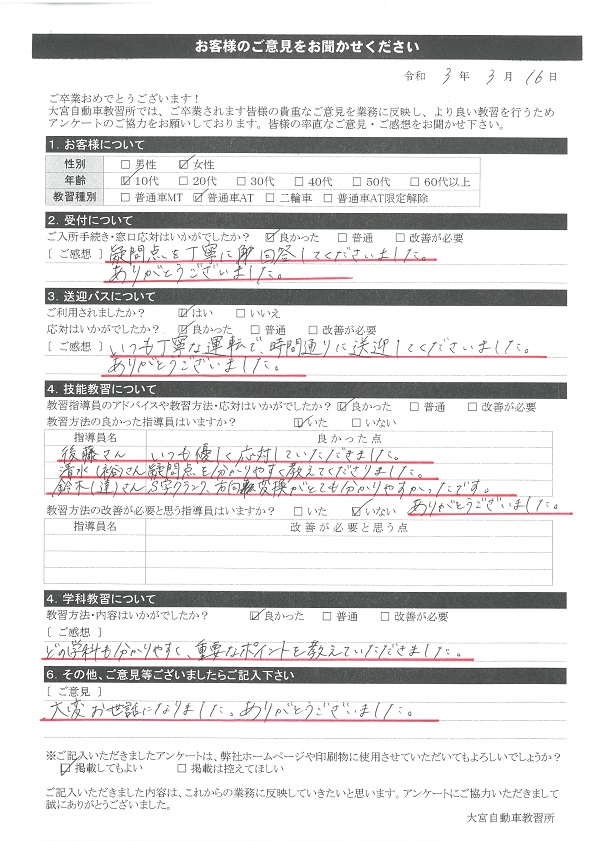 お客様のご意見をお聞かせください
令和 3 年 3 月 16 日
ご卒業おめでとうございます！
大宮自動車教習所では、ご卒業されます皆様の貴重なご意見を業務に反映し、より良い教習を行うため
アンケートのご協力をお願いしております。皆様の率直なご意見・ご感想をお聞かせ下さい。
1. お客様について
性別 □ 男性 ☑ 女性
年齢 ☑ 10代 □ 20代 □ 30代 □ 40代 □ 50代 □ 60代以上
教習種別 □ 普通車MT ☑ 普通車AT □ 二輪車 □ 普通車AT限定解除
2. 受付について
ご入所手続き・窓口応対はいかがでしたか？ ☑ 良かった □ 普通 □ 改善が必要
［ ご感想 ］ 疑問点を丁寧に即回答してくださいました。
ありがとうございました。
3. 送迎バスについて
ご利用されましたか？ ☑ はい □ いいえ
応対はいかがでしたか？ ☑ 良かった □ 普通 □ 改善が必要
［ ご感想 ］ いつも丁寧な運転で、時間通りに送迎してくださいました。
ありがとうございました。
4. 技能教習について
教習指導員のアドバイスや教習方法・応対はいかがでしたか？ ☑ 良かった □ 普通 □ 改善が必要
教習方法の良かった指導員はいますか？ ☑ いた □ いない
指導員名 良かった点
後藤さん いつも優しく応対していただきました。
清水(裕)さん 疑問点を分かりやすく教えてくださりました。
鈴木(達)さん S字クランク、方向転変換がとても分かりやすかったです。
ありがとうございました。
教習方法の改善が必要と思う指導員はいますか？ □ いた ☑ いない
指導員名 改善が必要と思う点
4. 学科教習について
教習方法・内容はいかがでしたか？ ☑ 良かった □ 普通 □ 改善が必要
［ ご感想 ］
どの学科も分かりやすく、重要なポイントを教えていただきました。
6. その他、ご意見等ございましたらご記入下さい
［ ご意見 ］
大変お世話になりました。ありがとうございました。
※ご記入いただきましたアンケートは、弊社ホームページや印刷物に使用させていただいてもよろしいでしょうか？
☑ 掲載してもよい □ 掲載は控えてほしい
ご記入いただきました内容は、これからの業務に反映していきたいと思います。アンケートにご協力いただきまして
誠にありがとうございました。
大宮自動車教習所